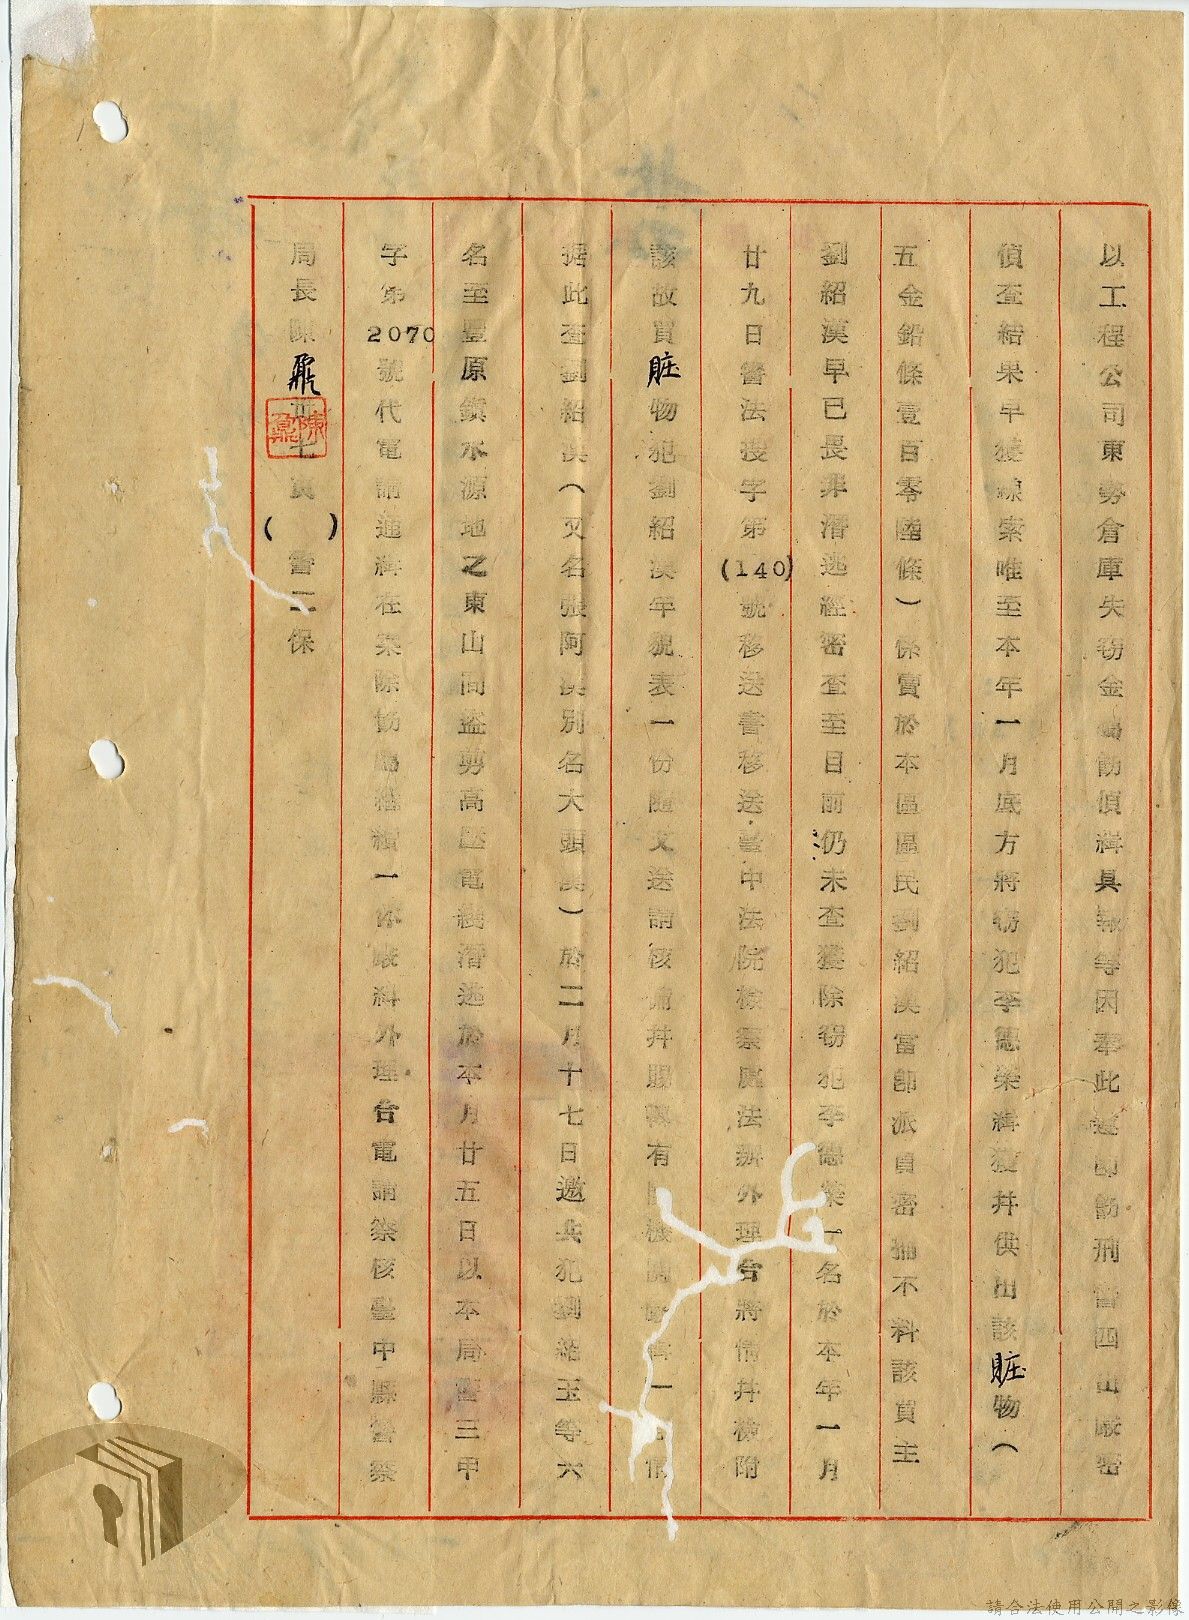 以工程公司東勢倉庫失竊金屬飭偵緝具報等因奉此遵即飭刑警四出嚴密
偵查結果早獲線索唯至本年一月底方將竊犯李德榮緝獲并供出該賍物（
五金鉛條壹百零陸條）係賣於本區區民劉紹漢當即派員密捕不料該買主
劉紹漢早已畏罪潛逃經密查至日前仍未查獲除竊犯李德榮一名於本年一月
廿九日警法後字第(140)號移送書移送臺中法院檢察處法辦外理合將情并檢附
該故買賍物犯劉紹漢年貌表一份隨文送請核備并賜
据此查劉紹漢（又名張阿漢別名大頭漢）於二月十七日邀共犯劉結玉等六
名至豐原鎮水源地之東山間盜剪高壓電線潛逃於本月廿五日以本局警三甲
字第2070號代電請通緝在案除飭屬繼續一體嚴緝外理合電請察核臺中縣警察
局長陳鼐 (　)警二保
陳鼐
請合法使用公開之影像